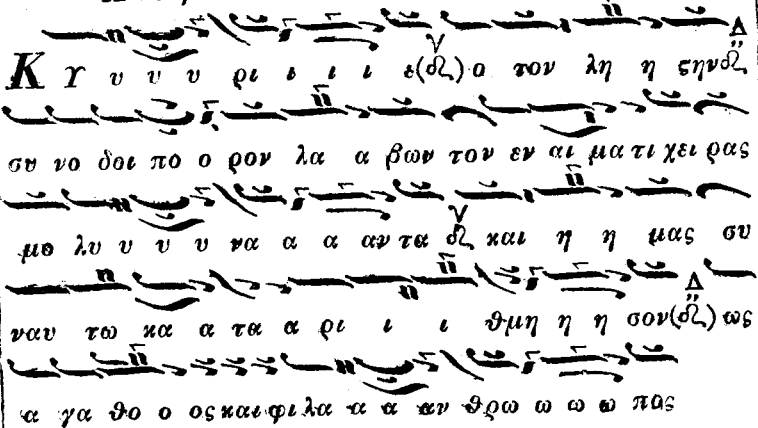 Κ Υ υ υ υ ρι ι ι ι ι ο τον λη η ςην
συ νο δοι πο ο ρον λα α βων τον εν αι μα τι χει ρας
μο λυ υ υ υ να α α αν τα και η η μας συ
ναυ τω κα α τα α ρι ι ι θμη η η σον ως
α γα θο ο ος και φι λα α α αν θρω ω ω ω πος